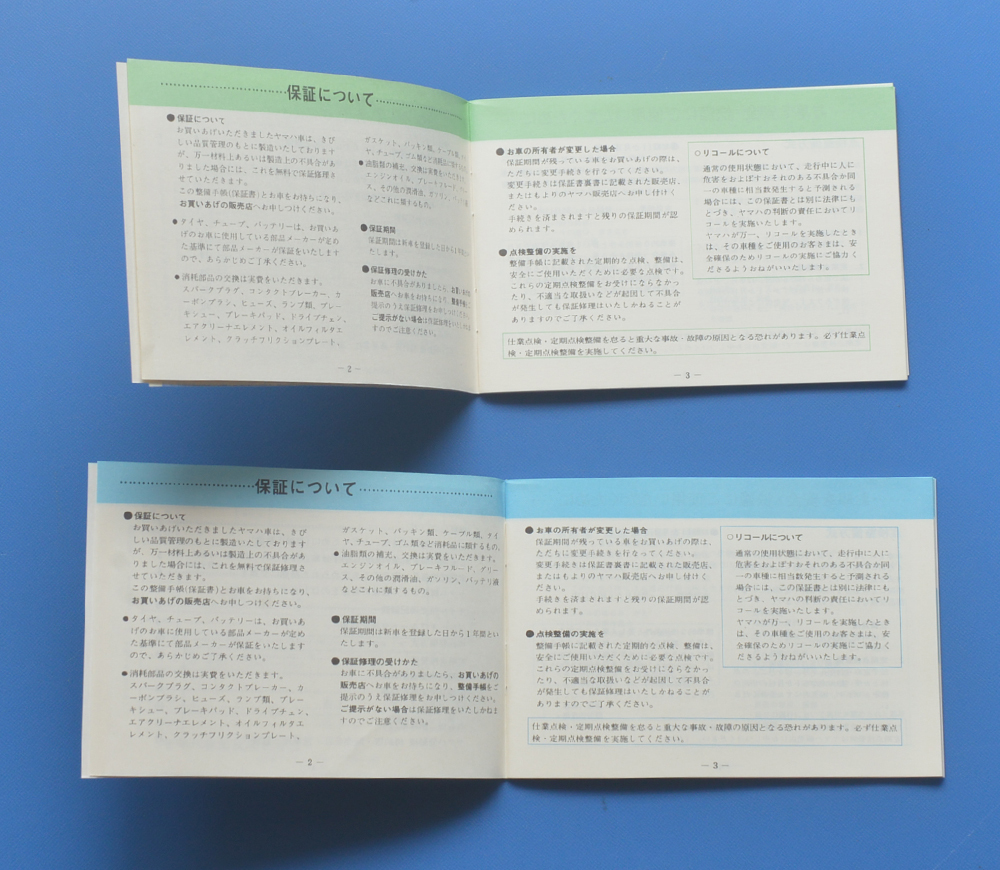 保証について
●保証について
お買いあげいただきましたヤマハ車は、きび
しい品質管理のもとに製造いたしております
が、万一材料上あるいは製造上の不具合があ
りました場合には、これを無料で保証修理さ
せていただきます。
この整備手帳(保証書)とお車をお持ちになり、
お買いあげの販売店へお申しつけください。
●タイヤ、チューブ、バッテリーは、お買いあ
げのお車に使用している部品メーカーが定め
た基準にて部品メーカーが保証をいたします
ので、あらかじめご了承ください。
●消耗部品の交換は実費をいただきます。
スパークプラグ、コンタクトブレーカー、カ
ーボンブラシ、ヒューズ、ランプ類、ブレー
キシュー、ブレーキパッド、ドライブチェン、
エアクリーナエレメント、オイルフィルタエ
レメント、クラッチフリクションプレート、
ガスケット、パッキン類、ケーブル類、
ヤ、チューブ、ゴム類など消耗品に
●油脂類の補充、交換は実費をいた
エンジンオイル、ブレーキフルード、
ス、その他の潤滑油、ガソリン、
などこれに類するもの。
●保証期間
保証期間は新車を登録した日から1年
たします。
●保証修理の受けかた
お車に不具合がありましたら、お買い
販売店へお車をお持ちになり、整備手帳
提示のうえ保証修理をお申しつけくだ
ご提示がない場合は保証修理をいたしかね
すのでご注意ください。
— 2 —
●お車の所有者が変更した場合
保証期間が残っている車をお買いあげの際は、
ただちに変更手続きを行なってください。
変更手続きは保証書裏書に記載された販売店、
またはもよりのヤマハ販売店へお申し付けく
ださい。
手続きを済まされますと残りの保証期間が認
められます。
●点検整備の実施を
整備手帳に記載された定期的な点検、整備は、
安全にご使用いただくために必要な点検です。
これらの定期点検整備をお受けにならなかっ
たり、不適当な取扱いなどが起因して不具合
が発生しても保証修理はいたしかねることが
ありますのでご了承ください。
○リコールについて
通常の使用状態において、走行中に人に
危害をおよぼすおそれのある不具合が同
一の車種に相当数発生すると予測される
場合には、この保証書とは別に法律にも
とづき、ヤマハの判断の責任においてリ
コールを実施いたします。
ヤマハが万一、リコールを実施したとき
は、その車種をご使用のお客さまは、安
全確保のためリコールの実施にご協力く
ださるようおねがいいたします。
仕業点検・定期点検整備を怠ると重大な事故・故障の原因となる恐れがあります。必ず仕業点
検・定期点検整備を実施してください。
— 3 —
保証について
●保証について
お買いあげいただきましたヤマハ車は、きび
しい品質管理のもとに製造いたしております
が、万一材料上あるいは製造上の不具合があ
りました場合には、これを無料で保証修理さ
せていただきます。
この整備手帳(保証書)とお車をお持ちになり、
お買いあげの販売店へお申しつけください。
●タイヤ、チューブ、バッテリーは、お買いあ
げのお車に使用している部品メーカーが定め
た基準にて部品メーカーが保証をいたします
ので、あらかじめご了承ください。
●消耗部品の交換は実費をいただきます。
スパークプラグ、コンタクトブレーカー、カ
ーボンブラシ、ヒューズ、ランプ類、ブレー
キシュー、ブレーキパッド、ドライブチェン、
エアクリーナエレメント、オイルフィルタエ
レメント、クラッチフリクションプレート、
ガスケット、パッキン類、ケーブル類、タイ
ヤ、チューブ、ゴム類など消耗品に類するもの。
●油脂類の補充、交換は実費をいただきます。
エンジンオイル、ブレーキフルード、グリー
ス、その他の潤滑油、ガソリン、バッテリ液
などこれに類するもの。
●保証期間
保証期間は新車を登録した日から1年間とい
たします。
●保証修理の受けかた
お車に不具合がありましたら、お買いあげの
販売店へお車をお持ちになり、整備手帳をご
提示のうえ保証修理をお申しつけください。
ご提示がない場合は保証修理をいたしかねま
すのでご注意ください。
— 2 —
●お車の所有者が変更した場合
保証期間が残っている車をお買いあげの際は、
ただちに変更手続きを行なってください。
変更手続きは保証書裏書に記載された販売店、
またはもよりのヤマハ販売店へお申し付けく
ださい。
手続きを済まされますと残りの保証期間が認
められます。
●点検整備の実施を
整備手帳に記載された定期的な点検、整備は、
安全にご使用いただくために必要な点検です。
これらの定期点検整備をお受けにならなかっ
たり、不適当な取扱いなどが起因して不具合
が発生しても保証修理はいたしかねることが
ありますのでご了承ください。
○リコールについて
通常の使用状態において、走行中に人に
危害をおよぼすおそれのある不具合が同
一の車種に相当数発生すると予測される
場合には、この保証書とは別に法律にも
とづき、ヤマハの判断の責任においてリ
コールを実施いたします。
ヤマハが万一、リコールを実施したとき
は、その車種をご使用のお客さまは、安
全確保のためリコールの実施にご協力く
ださるようおねがいいたします。
仕業点検・定期点検整備を怠ると重大な事故・故障の原因となる恐れがあります。必ず仕業点
検・定期点検整備を実施してください。
— 3 —